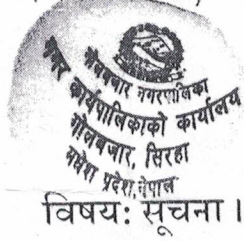 गोलबजार नगरपालिका
नगर कार्यपालिकाको कार्यालय
गोलबजार, सिरहा
मधेश प्रदेश, नेपाल
विषय: सूचना ।